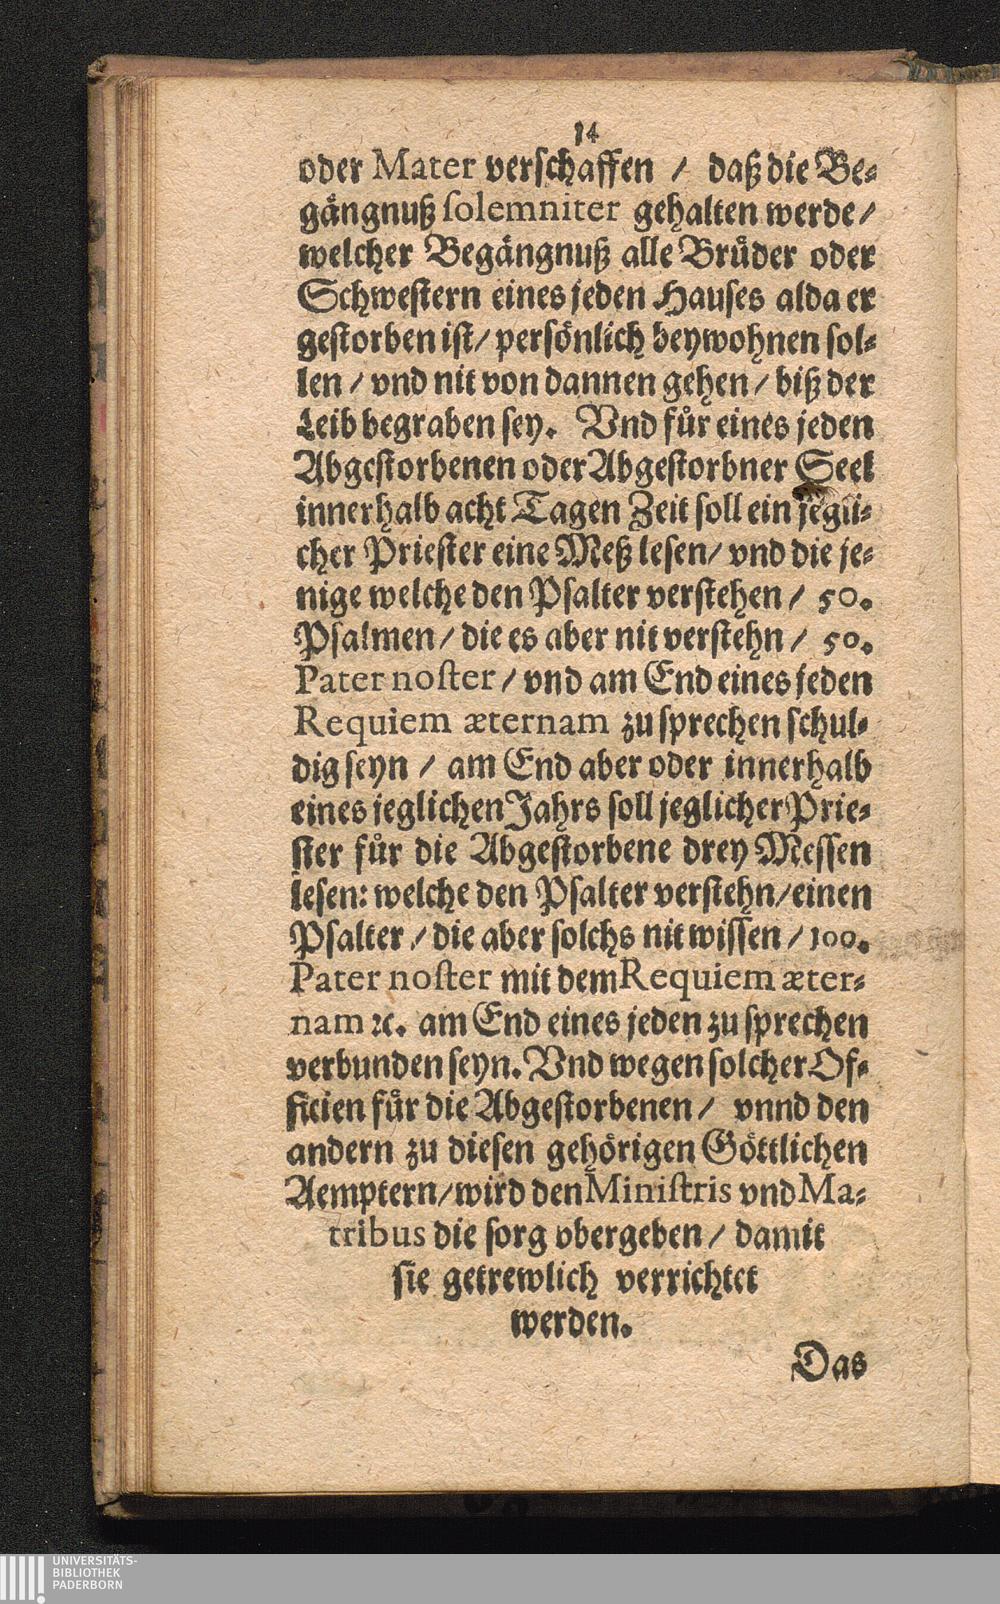 14
oder Mater verschaffen / daß die Be-
gängnuß solemniter gehalten werde /
welcher Begängnuß alle Brüder oder
Schwestern eines jeden Hauses alda er
gestorben ist / persönlich beywohnen sol-
len / vnd nit von dannen gehen / biß der
Leib begraben sey. Vnd für eines jeden
Abgestorbenen oder Abgestorbner Seel
innerhalb acht Tagen Zeit soll ein jegli-
cher Priester eine Meß lesen / vnd die je-
nige welche den Psalter verstehen / 50.
Psalmen / die es aber nit verstehn / 50.
Pater noster / vnd am End eines jeden
Requiem æternam zu sprechen schul-
dig seyn / am End aber oder innerhalb
eines jeglichen Jahrs soll jeglicher Prie-
ster für die Abgestorbene drey Messen
lesen: welche den Psalter verstehn / einen
Psalter / die aber solchs nit wissen / 100.
Pater noster mit dem Requiem æter-
nam ꝛc. am End eines jeden zu sprechen
verbunden seyn. Vnd wegen solcher Of-
ficien für die Abgestorbenen / vnnd den
andern zu diesen gehörigen Göttlichen
Aemptern / wird den Ministris vnd Ma-
tribus die sorg vbergeben / damit
sie getrewlich verrichtet
werden.
Das
UNIVERSITÄTS-
BIBLIOTHEK
PADERBORN